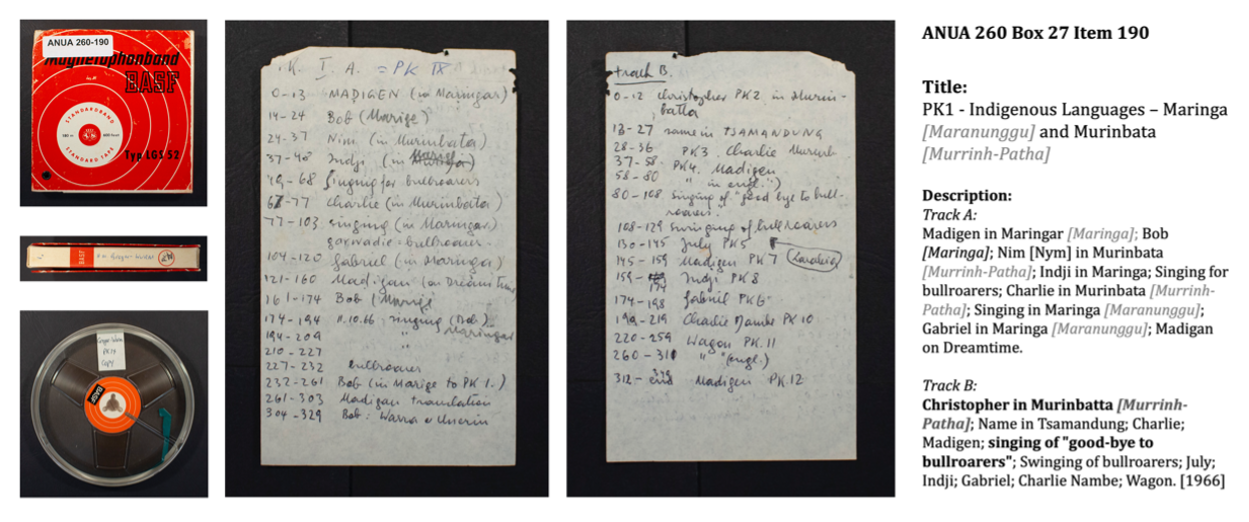 ANUA 260-190
Magnetophonband
BASF
STANDARDBAND
STANDARD TAPE
Typ LGS 52
BASF
Copy
BASF
K. I. A. = PK IX
0-13 MADIGEN (in Maringar)
14-24 Bob (Marige)
24-37 Nim (in Murinbata)
37-48 Indji (in
49-68 Singing for bullroarers
67-77 Charlie (in Murinbata)
77-103 singing (in Maringar)
bullroarer
104-120 Gabriel (in Maringa)
121-160 Madigan (on Dreamtime
161-174 Bob (Marige
174-194 11.10.66, singing (Bob)
194-209 " Maringar
210-227
227-232 bullroarer
232-261 Bob (in Marige to PK 1.)
261-303 Madigan translation
304-329 Bob:
track B.
0-12 Christopher PK2 in Murin-
batta
13-27 same in TSAMANDUNG
28-36 PK3 Charlie Murinb.
37-58 PK4. Madigen
58-80 " in engl.")
80-108 singing of "good bye to bull-
roarers"
108-129 swinging of bullroarers
130-145 July PK5
145-159 Madigen PK 7
159-174 Indji PK 8
174-198 Gabriel PK 6
199-219 Charlie Nambe PK 10
220-259 Wagon PK. 11
260-311 " "(engl.)
312-end Madigen PK.12
ANUA 260 Box 27 Item 190
Title:
PK1 - Indigenous Languages – Maringa
[Maranunggu] and Murinbata
[Murrinh-Patha]
Description:
Track A:
Madigen in Maringar [Maringa]; Bob
[Maringa]; Nim [Nym] in Murinbata
[Murrinh-Patha]; Indji in Maringa; Singing for
bullroarers; Charlie in Murinbata [Murrinh-
Patha]; Singing in Maringa [Maranunggu];
Gabriel in Maringa [Maranunggu]; Madigan
on Dreamtime.
Track B:
Christopher in Murinbatta [Murrinh-
Patha]; Name in Tsamandung; Charlie;
Madigen; singing of "good-bye to
bullroarers"; Swinging of bullroarers; July;
Indji; Gabriel; Charlie Nambe; Wagon. [1966]